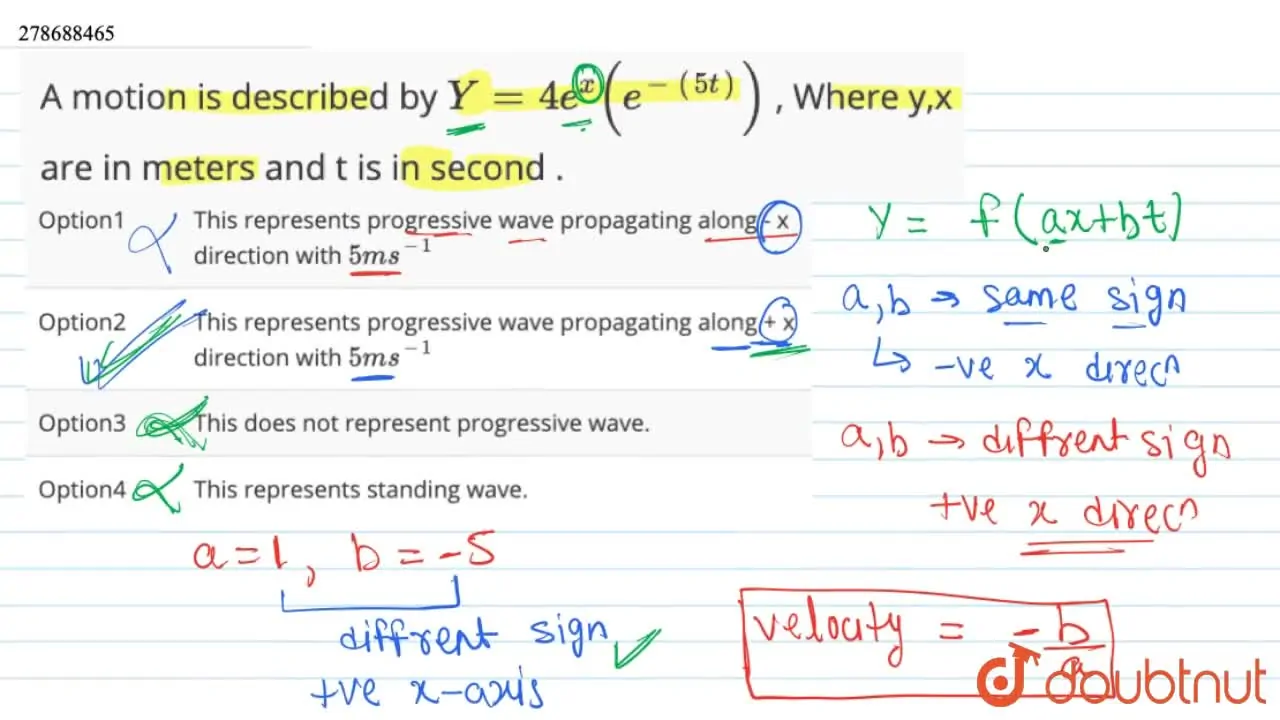 278688465
A motion is described by Y = 4e^x (e^-(5t)) , Where y,x
are in meters and t is in second .
Option1 This represents progressive wave propagating along - x
direction with 5ms^-1
Option2 This represents progressive wave propagating along + x
direction with 5ms^-1
Option3 This does not represent progressive wave.
Option4 This represents standing wave.
a = 1, b = -5
diffrent sign
+ve x-axis
Y = f(ax+bt)
a,b → same sign
↳ -ve x direcn
a,b → diffrent sign
+ve x direcn
velocity = -b/a
doubtnut